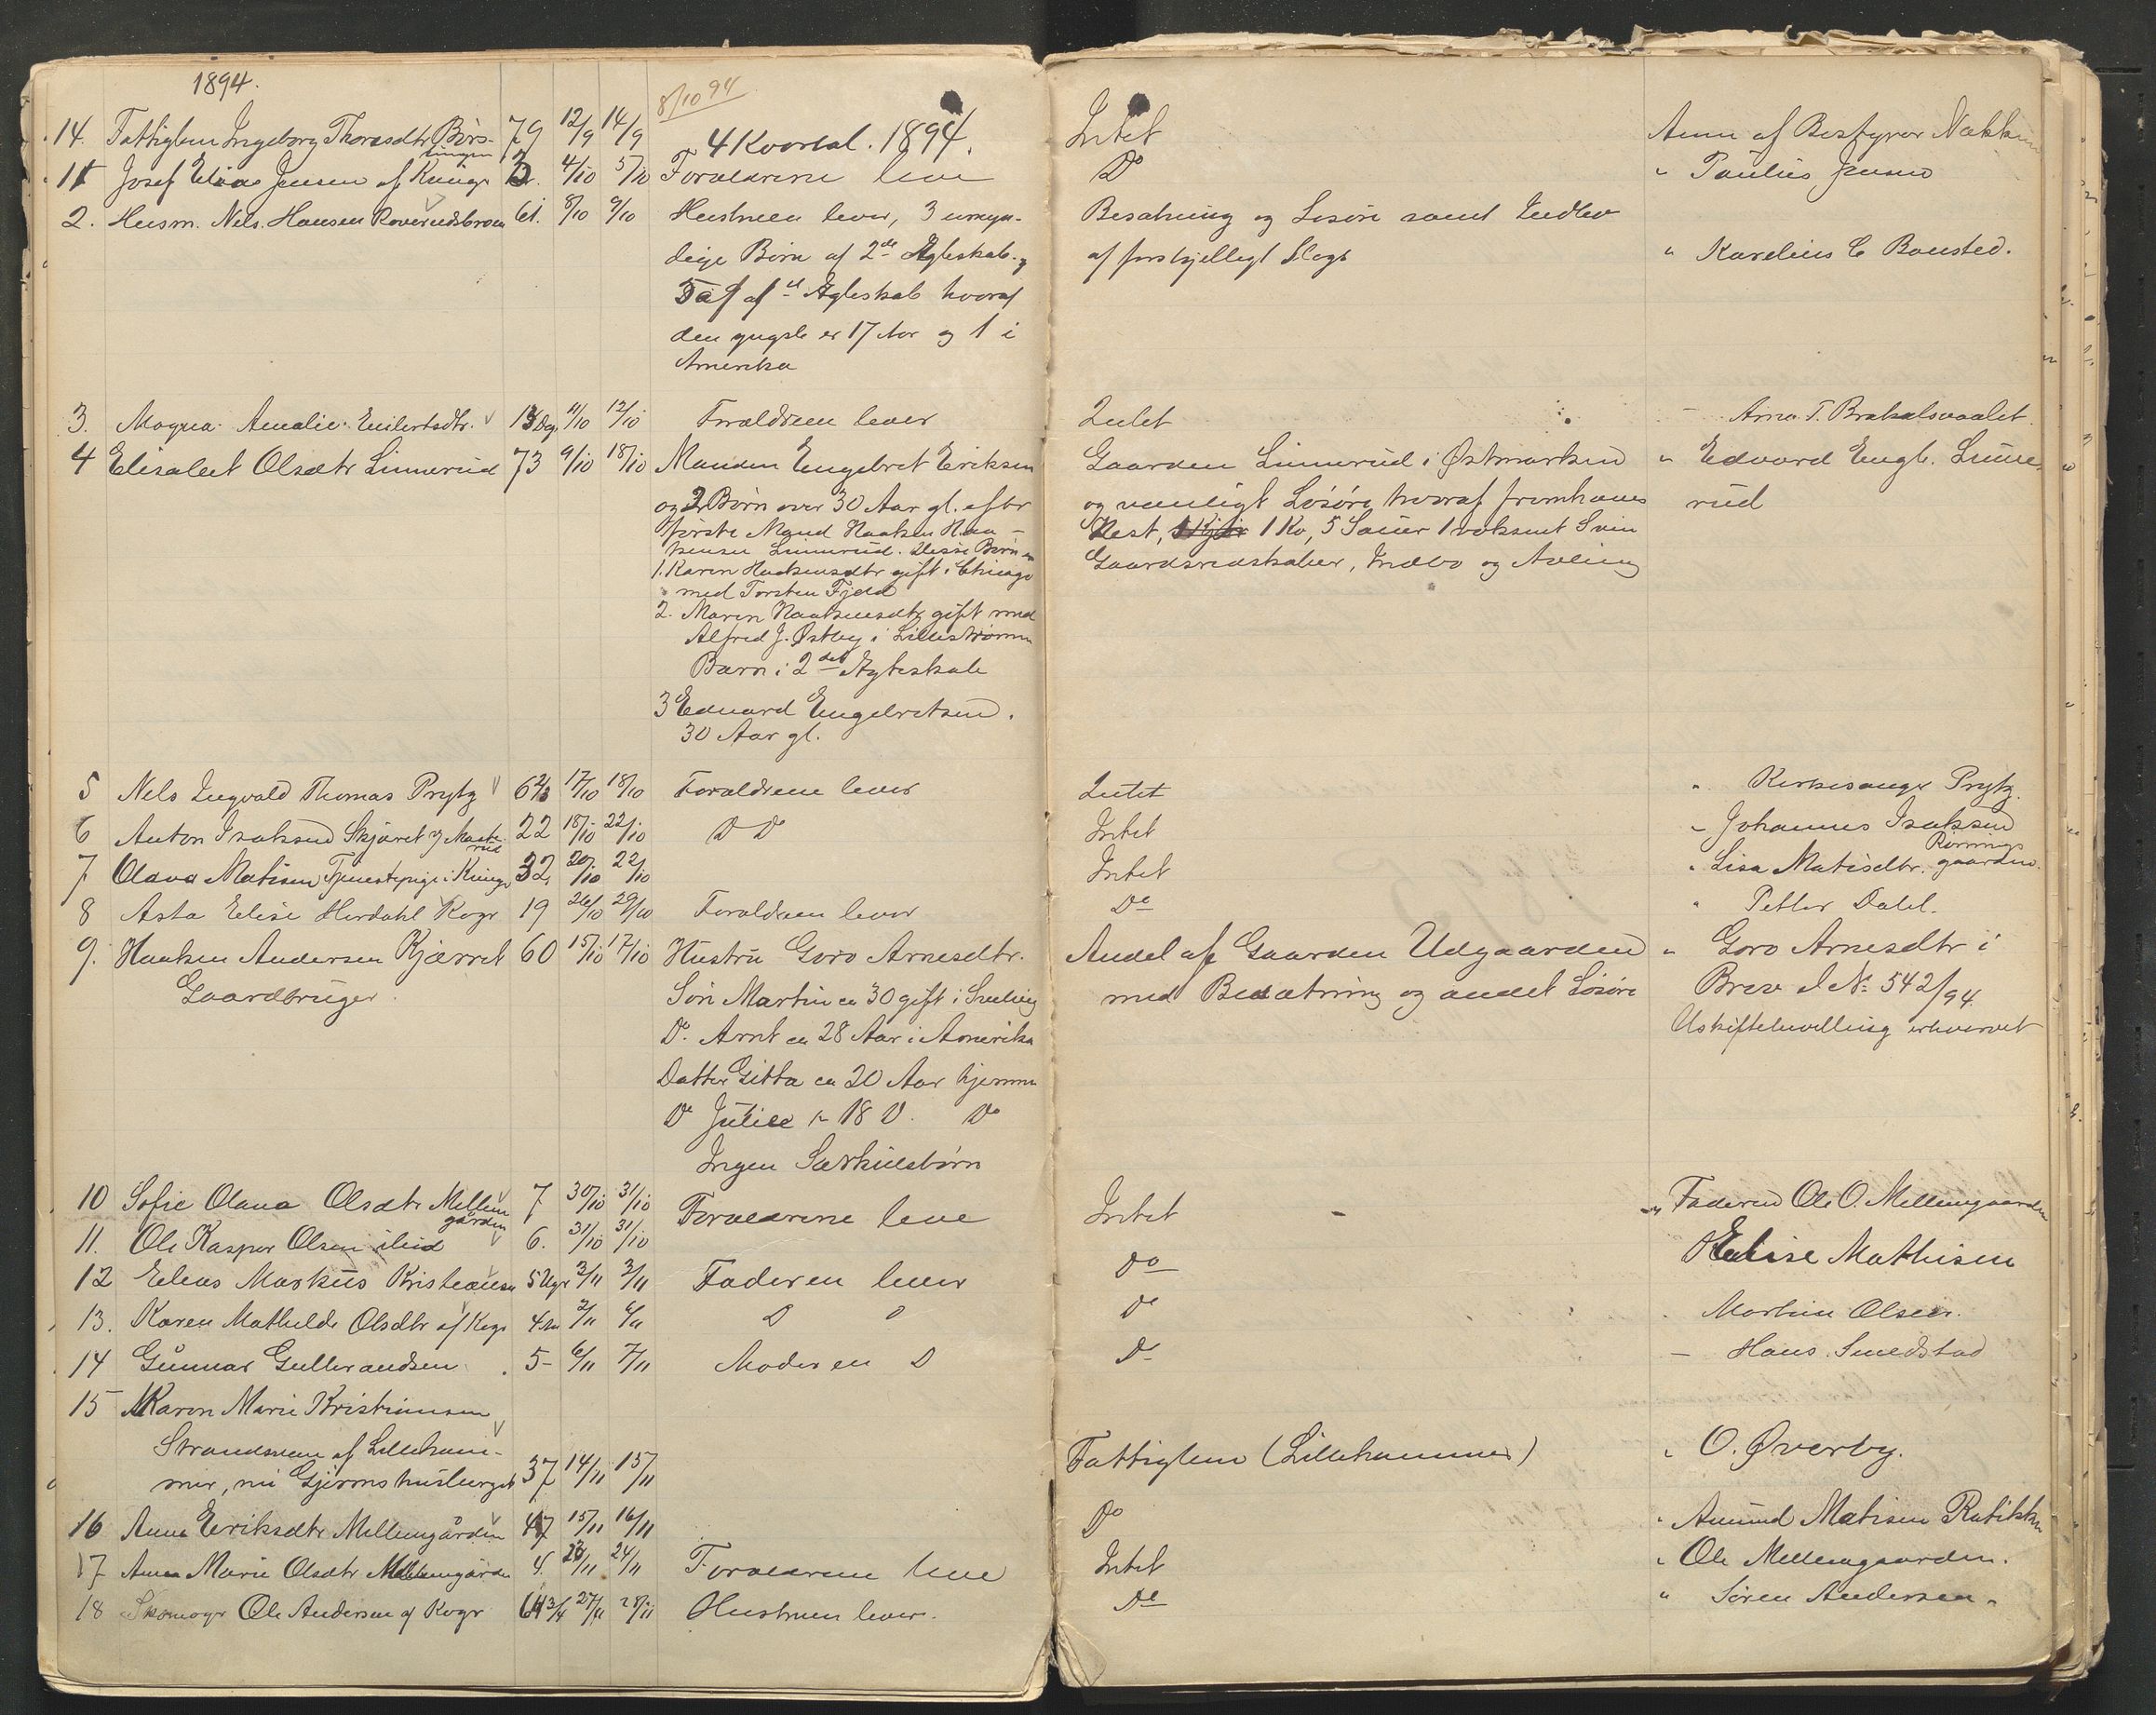 1894.
8/10 94
14. Fattiglem Ingeborg Thoresdtr Börs- 79 12/9 14/9 Intet Anm af Bestyrer Nökken
tingen
4 Kvartal. 1894.
1 Josef Elias Jensen af Kongv 4/10 5/10 Forældrene leve Do " Paulus Jensen
2. Husm. Nels. Hansen Roverudsbroen 61. 8/10 9/10 Hustruen lever, 3 umyn- Besætning og Løsøre samt Indbo
dige Børn af 2det Ægteskab og af forskjelligt Slags " Karelius C Bausted.
5 af 1st Ægteskab hvoraf
den yngste er 17 Aar og 1 i
Amerika
3. Magna Amalie Eilertsdtr. 13 Dg. 11/10 12/10 Forældrene lever Intet - Arne T. Brakalsvaalet.
4 Elisabet Olsdtr Linnerud 73 9/10 18/10 Manden Engebret Eriksen Gaarden Linnerud i Østmarken " Edvard Engb. Linne-
og 2 Børn over 30 Aar gl. efter og vanligt Løsøre, hvoraf fremhæves rud
første Mand Haaken Haa- Hest, 1 Ko, 5 Sauer 1 voksent Svin
kensen Linnerud. Disse Børn er Gaardsredskaber, Indbo og Avling
1. Karen Haakensdtr gift i Chicago
med Torsten Fjeld
2. Maren Haakensdtr gift med
Alfred J. Østby i Lillestrømmen
Barn i 2det Ægteskab
3 Edvard Engebretsen.
30 Aar gl.
5 Nels Ingvald Thomas Prytz 17/10 18/10 Forældrene lever Intet " Kirkesanger Prytz.
6 Anton Isaksen Skjæret af Maste- 22 18/10 22/10 D D Intet " Johannes Isaksen
rud
7 Olava Matisen Tjenestepige i Kongv 32 20/10 22/10 Intet " Lisa Matisdtr. Rønnings
gaarden.
8 Asta Elise Herdahl Kogr 19 26/10 29/10 Forældrene lever Do " Petter Dahl.
9. Haaken Andersen Kjærret 60 15/10 17/10 Hustru Goro Arnesdtr. Andel af Gaarden Udgaarden " Goro Arnesdtr i
Gaardbruger. Søn Martin ca 30 gift i med Besætning og andet Løsøre Brev J. No 542/94.
Do. Arnt ca 28 Aar i Amerika Uskiftebevilling erhvervet
Datter Gitta ca 20 Aar hjemme
Do Julie 18 D. Do
Ingen Særkulsbørn
10 Sofie Olava Olsdtr Mellem 7 30/10 31/10 Forældrene leve Intet " Faderen Ole O. Mellemgaarden
gården
11. Ole Kasper Olsen ibid 6. 31/10 31/10
12 Elias Markus Kristiansen 5 Ugr 3/11 3/11 Faderen lever Do Elise Mathisen
13. Karen Mathilde Olsdtr af Kogr 2/11 6/11 D D Do Martin Olsen.
14 Gunnar Gulbrandsen 5 - 6/11 7/11 Moderen D Do - Hans Smedstad
15 Karen Marie Kristiansen
Strandsveen af Lilleham-
mer, nu Gjermshusberget 37 14/11 15/11 Fattiglem (Lillehammer) " O. Øverby.
16 Anne Eriksdtr Mellemgården 47 15/11 16/11 Do " Amund Matisen Ratikken
17 Anna Marie Olsdtr Mellemgården 4. 24/11 Forældrene leve Intet " Ole Mellemgaarden.
18 Skomager Ole Andersen af Kogr 64 3/4 27/11 28/11 Hustruen lever. Do " Søren Andersen.